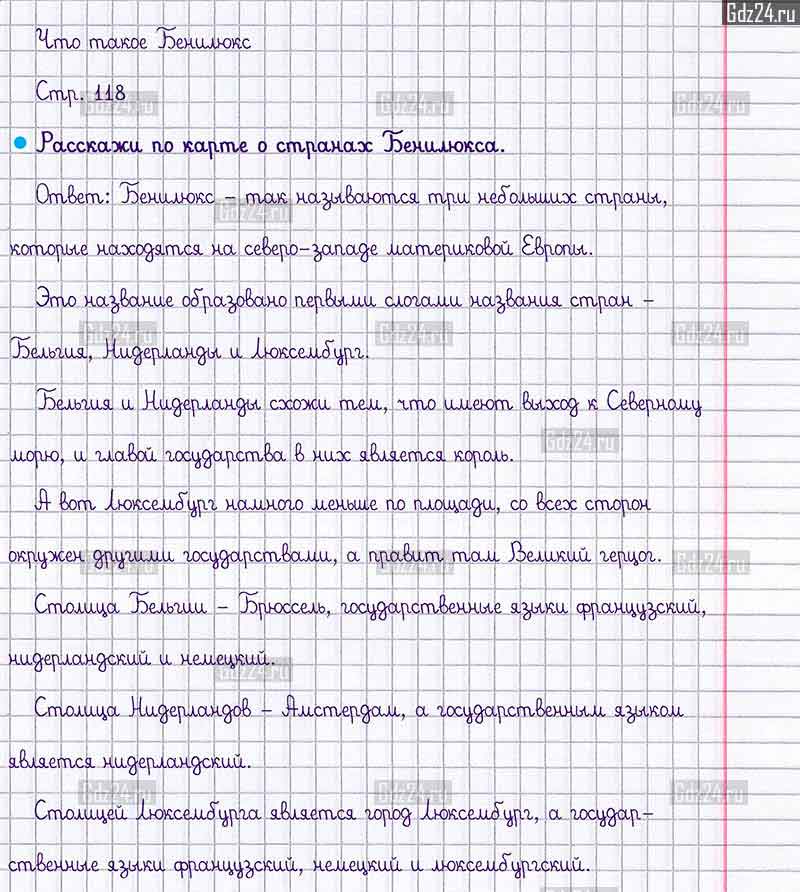 Gdz24.ru
Что такое Бенилюкс
Стр. 118
Расскажи по карте о странах Бенилюкса.
Ответ: Бенилюкс – так называются три небольших страны,
которые находятся на северо-западе материковой Европы.
Это название образовано первыми слогами названия стран –
Бельгия, Нидерланды и Люксембург.
Бельгия и Нидерланды схожи тем, что имеют выход к Северному
морю, и главой государства в них является король.
А вот Люксембург намного меньше по площади, со всех сторон
окружен другими государствами, а правит там Великий герцог.
Столица Бельгии – Брюссель, государственные языки французский,
нидерландский и немецкий.
Столица Нидерландов – Амстердам, а государственным языком
является нидерландский.
Столицей Люксембурга является город Люксембург, а государ-
ственные языки французский, немецкий и люксембургский.